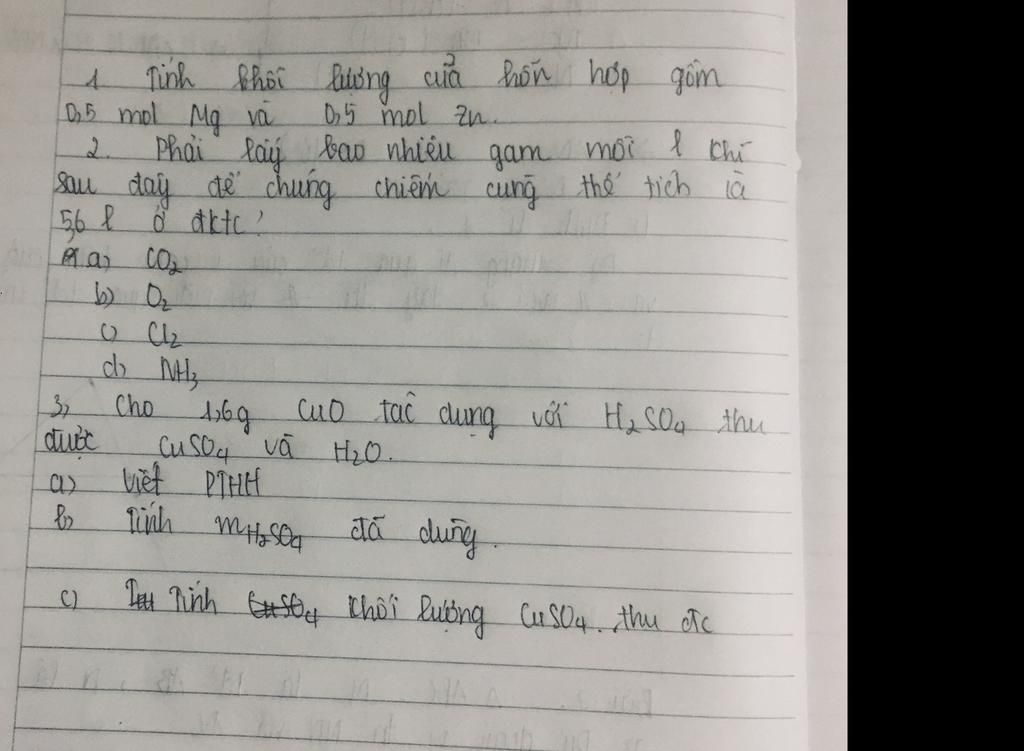 1. Tính khối lượng của hỗn hợp gồm
0,5 mol Mg và 0,5 mol Zn.
2. Phải lấy bao nhiêu gam mỗi l khí
sau đây để chúng chiếm cùng thể tích là
5,6 l ở đktc?
a) CO2
b) O2
c) Cl2
d) NH3
3, Cho 1,6g CuO tác dụng với H2SO4 thu
được CuSO4 và H2O.
a) Viết PTHH
b) Tính mH2SO4 đã dùng.
c) Tính khối lượng CuSO4 thu đc